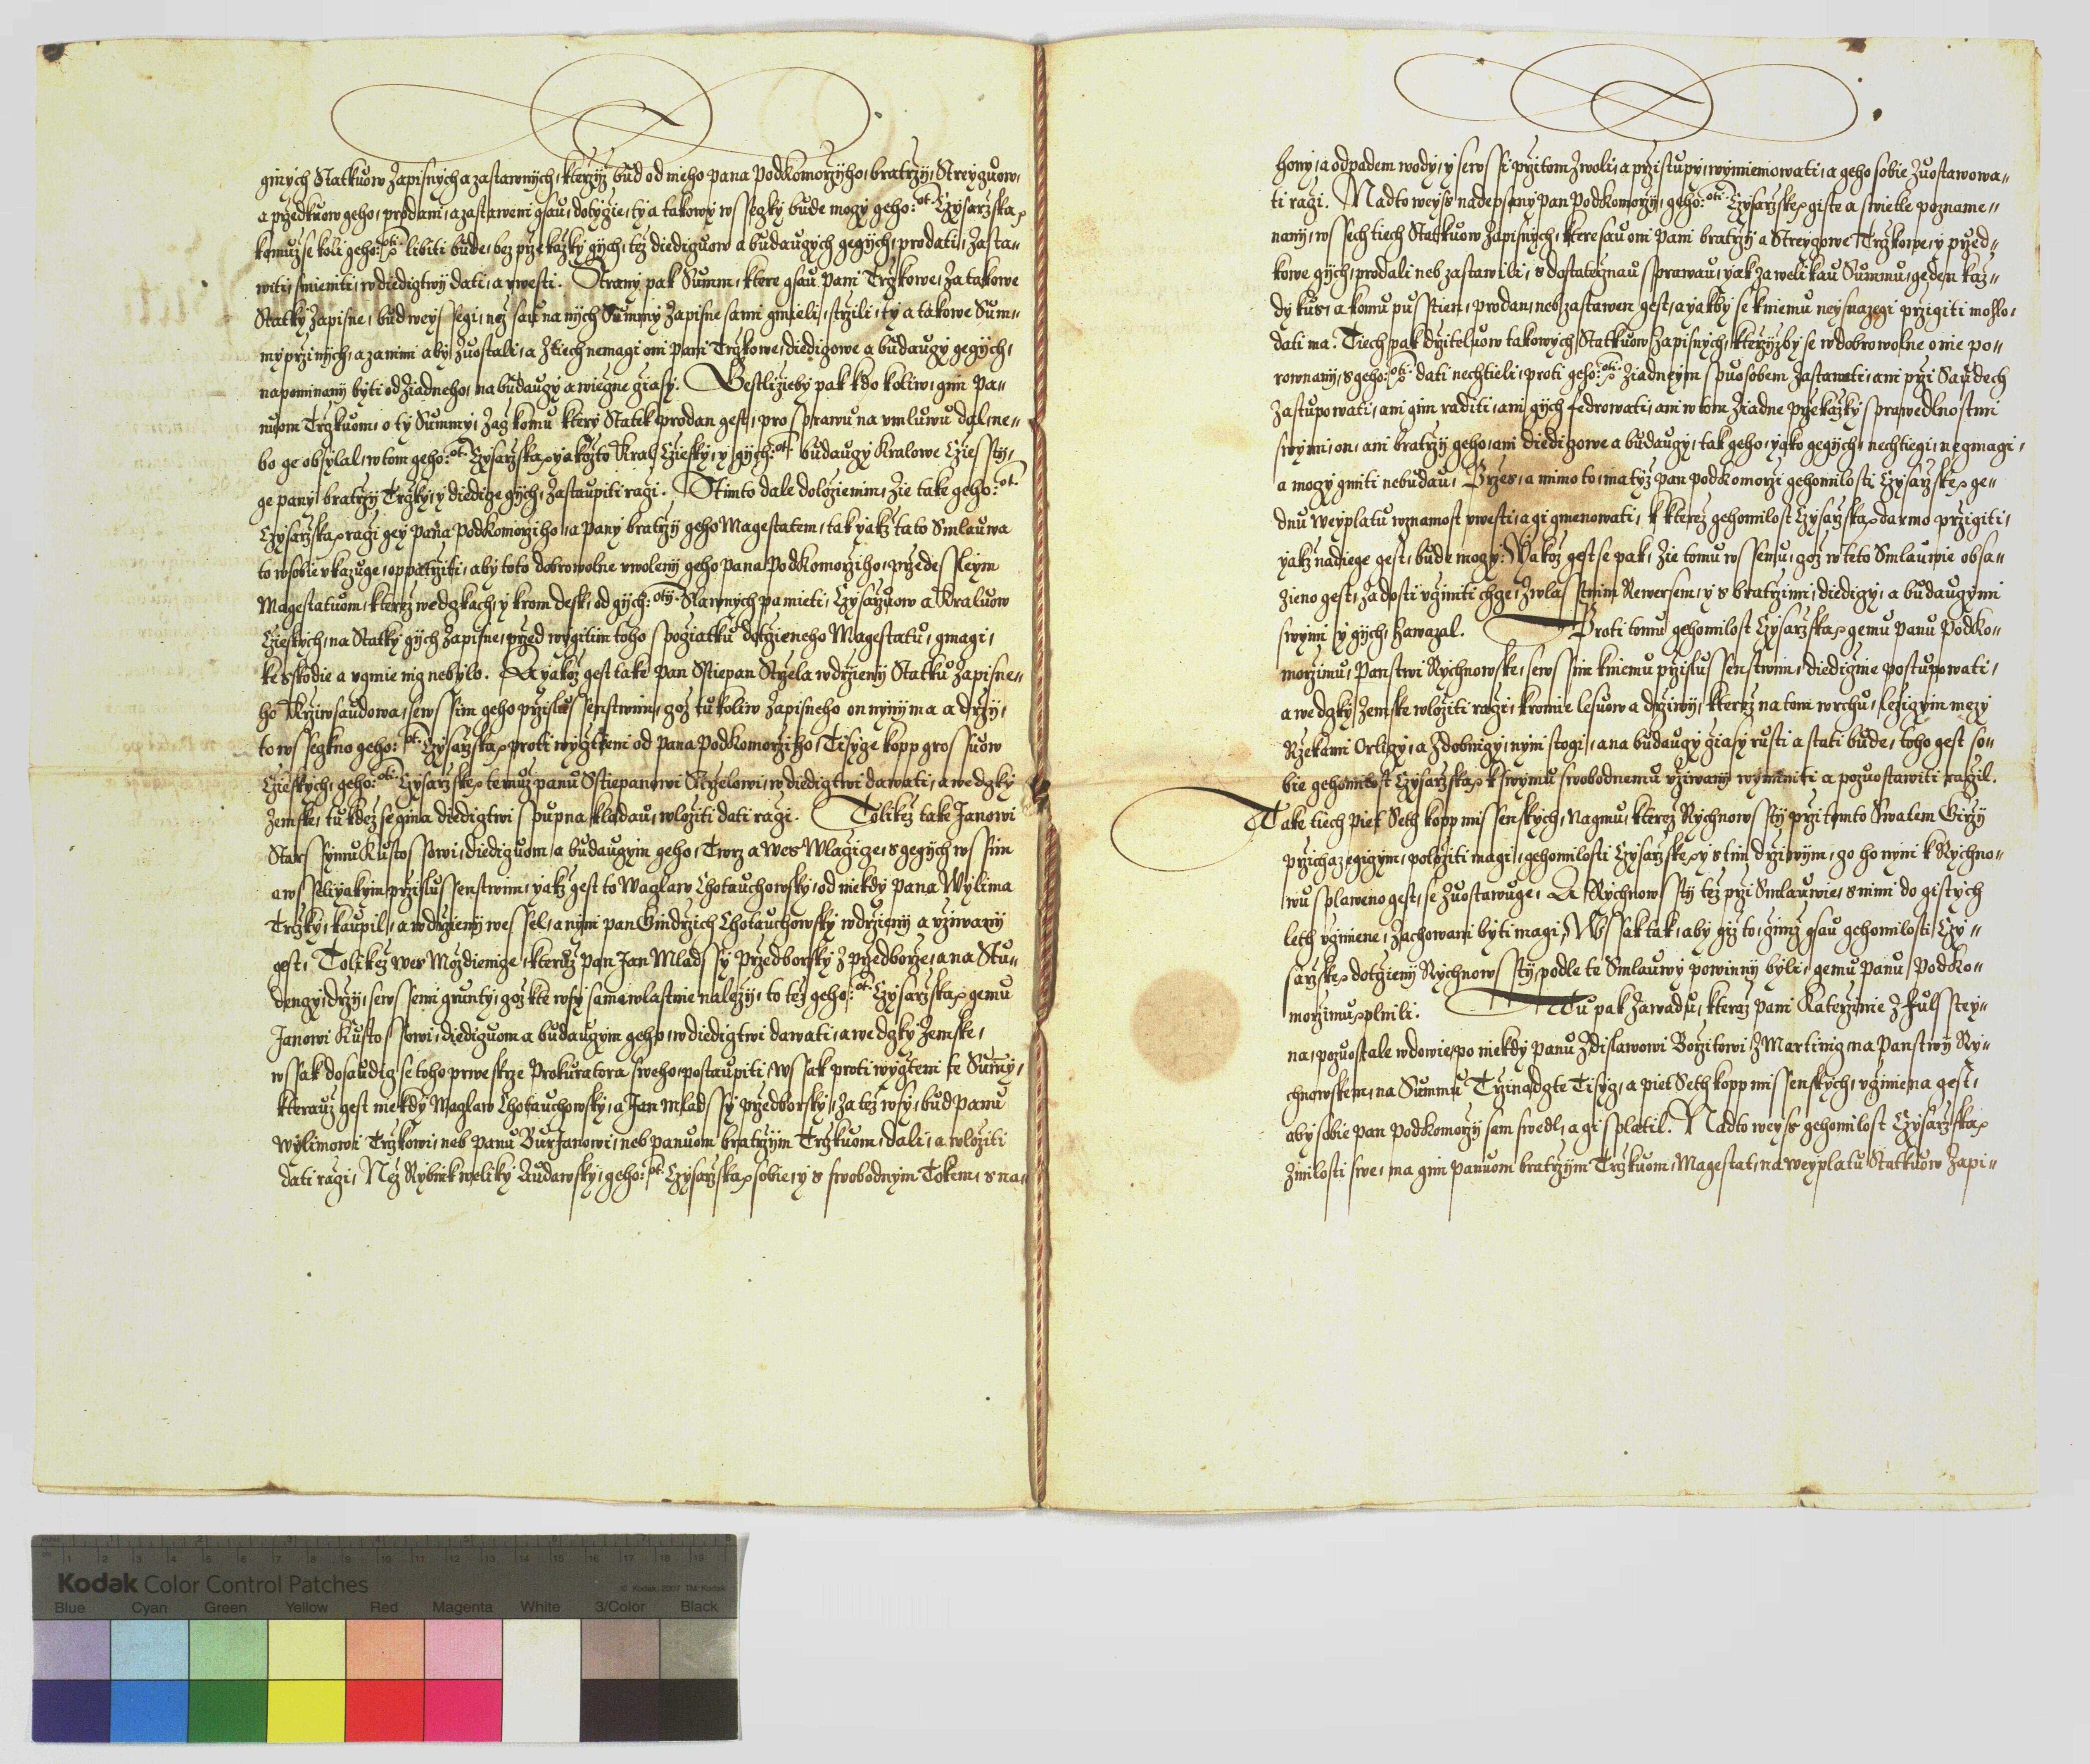 ginych Statkuow Zapisnych a zastawnych, kterzyz bud od nieho pana Podkomorzyho, bratrzy, Streyguow,
a przedkuow geho, prodani, a zastaweni gsau, dotygie, ty a takowy wssegky bude mogy geho: Czysarzska
komuz se koli geho: libiti bude, bez przekazky gich, tez diediguow a budaugych gegych, prodati, Zasta-
witi, smieniti, w diedigtwy dati, a uwesti. Strany pak Summ, ktere gsau Pani Trzkowe, za takowe
Statky Zapisne, bud weyssegi, nez sau na nych Summy Zapisne sami gmieli, strzili, ty a takowe Sum-
my przi nych, a za nimi aby zuostali, a z tiech nemagi oni Pani Trzkowe, diedigowe a budaugy gegych,
napominany byti od ziadneho, na budaugy a wiegne giasy. Gestlizieby pak kdo koliw, gim Pa-
nuom Trzkuom, o ty Summy, Zag komu ktery Statek prodan gest, pro sprawu na umluwu dal, ne-
bo ge obsylal, w tom geho: Czysarzska yakozto Kral Czesky, y gych: budaugy Kralowe Czessty,
ge pany bratrzy Trzky, y diedige gych, Zastaupiti ragi. S timto dale dolozienim, Zie take geho:
Czysarzska ragi gey pana Podkomorziho, a pany bratrzy geho Magestatem, tak yakz tato Smlauwa
to w sobie ukazuge, oppatrziti, aby toto dobrowolne uwoleny geho pana Podkomorziho, przedessleym
Magestatuom, kterez we dgkach, y krom desk, od gych: Slawnych pamieti, Czysarzuow a Kraluow
Czeskych, na Statky gych Zapisne, przed wygitim toho spogiatku dotgieneho Magestatu, gmagi,
ke skodie a ugmie nig nebylo. A yakoz gest take pan Sstiepan Strzela w drzieny Statku Zapisne-
ho Krziwsaudowa, se wssim geho przislussenstwim, goz tu koliw Zapisneho on nyny ma a drzy,
to wssegkno geho: Czysarzska proti wygitieni od pana Podkomorziho, Tisyge kopp grossuow
Czeskych, geho: Czysarzske temuz panu Sstiepanowi Strzelowi, w diedigtwi dawati, a we dgky
Zemske, tu kdez se gina diedigtwi spupna kladau, wloziti dati ragi. Tolikez take Janowi
Starssymu Kustossowi, diediguom, a budaugym geho, Twrz a Wes Wlagige, s gegych wssim
a wsselyakym przislussenstwim, yakz gest to Waglaw Chotauchowsky, od niekdy pana Wylima
Trzky, kaupil, a w drzieny wessel, a nyni pan Gindrzich Chotauchowsky w drzieny a uziwany
gest, Tolikez wes Mozdienige, kteruz pan Jan Mladssy Przedborsky z przedborze, ana Stu-
dengy, drzy, se wssemi grunty, goz k te wsy samewlastnie nalezy, to tez geho: Czysarzska gemu
Janowi Kustossowi, diediguom a budaugym geho, w diedigtwi dawati, a we dgky Zemske,
wssak dosaudig se toho prwe skrze Prokuratora sweho, postaupiti, Wssak proti wygtem te Summy,
kterauz gest niekdy Waglaw Chotauchowsky, a Jan Mladssy Przedborsky, Za tez wsy, bud Panu
Wylimowi Trzkowi, neb Panu Burianowi, neb panuom bratrzim Trzkuom, dali, a wloziti
dati ragi, Nez Rybnik weliky Audawsky, geho: Czysarzska sobie, y s swobodnym Tokem, s na-
hony, a odpadem wody, y se wssi przitom zwoli, a przistupy, wyminiowati, a geho sobie Zuostawowa-
ti ragi. Nadto weyss nadepsany pan Podkomorzy, geho: Czysarzske giste a swietle pozname-
nany, wssech tiech Statkuow Zapisnych, ktere sau oni Pani bratrzy a Streygowe Trzkowe, y przed-
kowe gych, prodali neb zastawili, s dostategnau sprawau, yak za welikau Summu, geden kaz-
dy kus, a komu pusstien, prodan, neb zastawen gest, a yakby se k niemu neysnazegi przigiti mohlo,
dati ma. Tiech pak drziteluow takowych Statkuow Zapisnych, kterzyzby se w dobrowolne o nie po-
rownany, s geho: dati nechtieli, proti geho: Ziadneym spuosobem Zastawati, ani przi Saudech
Zastupowati, ani gim raditi, ani gych fedrowati, ani w tom Ziadne przekazky sprawedlnostmi
swymi, on, ani bratrzy geho, ani diedigowe a budaugy, tak geho, yako gegych, nechtiegi, negmagi,
a mogy gmiti nebudau, Przes, a mimo to, matyz pan Podkomorzi gehomilosti Czysarzske ge-
dnu weyplatu w znamost uwesti, a gi gmenowati, k kterez gehomilost Czysarzska darmo przigiti,
yakz nadiege gest, bude mogy: Yakoz gest se pak, Zie tomu wssemu, goz w teto Smlauwie obsa-
zieno gest, Za dosti uginiti chge, Zwlasstnim Rewersem, y s bratrzimi, diedigy, a budaugymi
swymi y gych, Zawazal. Proti tomu gehomilost Czysarzska gemu Panu Podko-
morzimu, Panstwi Rychnowske, se wssim k niemu przislussenstwim, diedignie postupowati,
a we dgky Zemske wloziti ragi, kromie lesuow a drziwy, kterez na tom wrchu, lezigym mezy
Rzekami Orligy, a Zdobnigy, nyni stogi, a na budaugy giasy rusti a stati bude, toho gest so-
bie gehomilost Czysarzska k swymu swobodnemu uziwany wyminiti a pozuostawiti ragil.
Take tiech Piet Seth kopp missenskych, Nagmu, kterez Rychnowssty przi tomto Swatem Girzy
przichazegigym, poloziti magi, gehomilosti Czysarzske y s tim drziwym, go ho nyni k Rychno-
wu splaweno gest, se Zuostawuge, A Rychnowssty tez przi Smlauwie, s nimi do gistych
leth uginiene, Zachowani byti magi, Wssak tak, aby giz to, gimz gsau gehomilosti Czy-
sarzske dotgieny Rychnowssty, podle te Smlauwy powinny byli, gemu panu Podko-
morzimu plnili. Tu pak Zawadu, kteraz pani Katerzinie z Fulsstey-
na, pozuostale wdowie, po niekdy panu Zdislawowi Borzitowi z Martinig na Panstwy Ry-
chnowskem, na Summu Trzinadgte Tisyg, a piet Seth kopp missenskych, uginiena gest,
aby sobie pan Podkomorzy sam swedl, a gi splatil. Nadto weyss gehomilost Czysarzska
Z milosti swe, ma gim panuom bratrzim Trzkuom, Magestat, na weyplatu Statkuow Zapi-
Kodak Color Control Patches
© Kodak, 2007 TM: Kodak
Blue Cyan Green Yellow Red Magenta White 3/Color Black